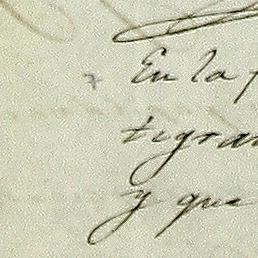 En la
tigra
y que